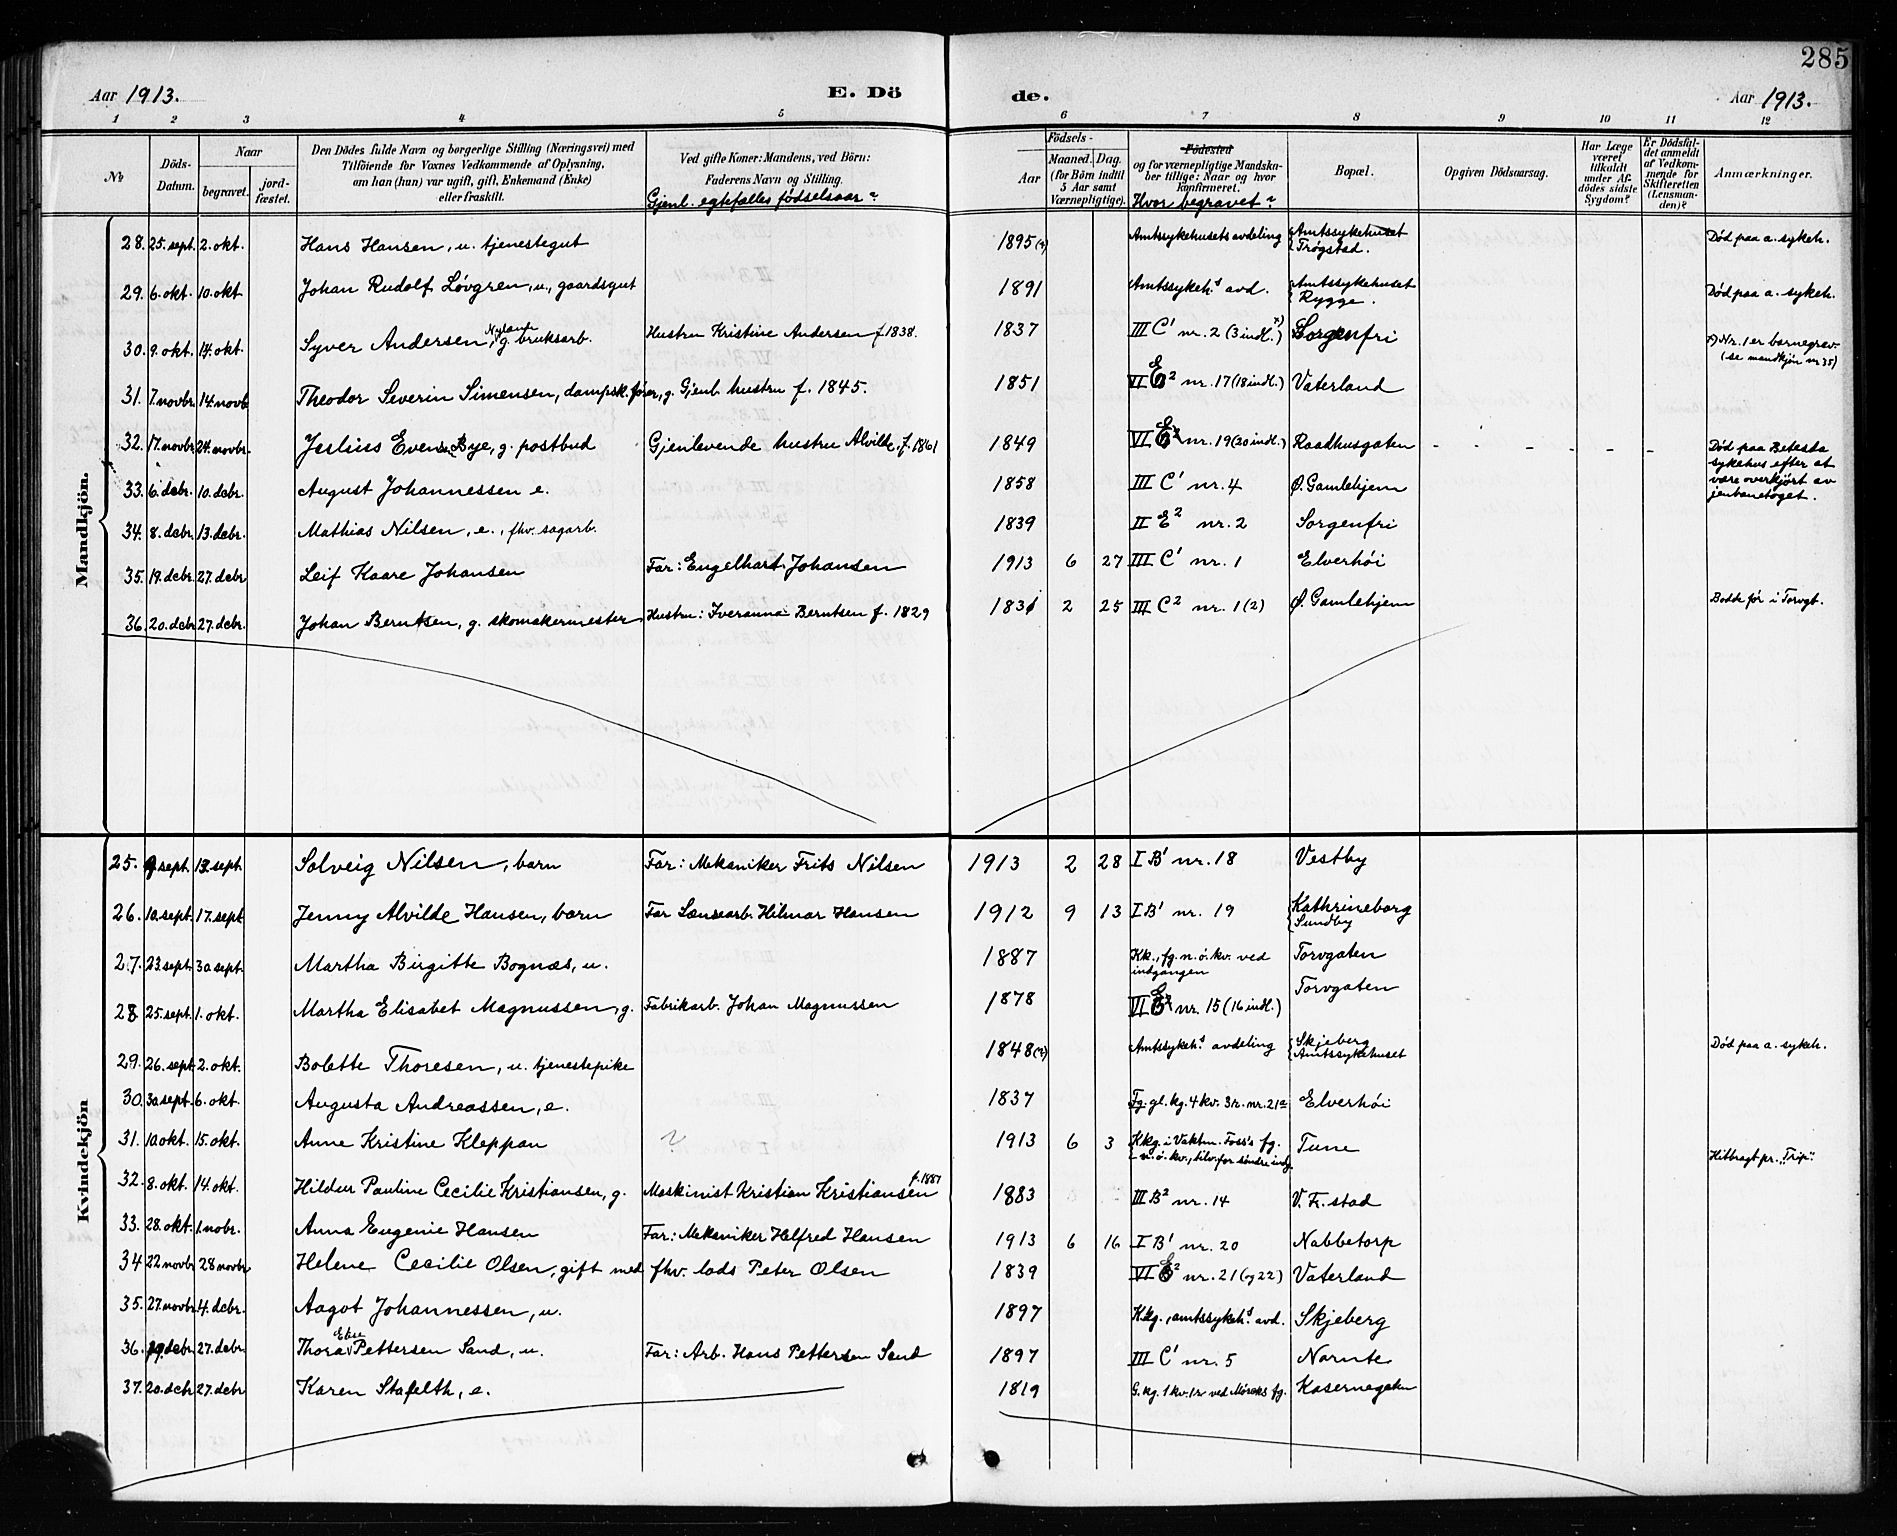 285
Aar 1913. E. Dö de. Aar 1913.
1 2 3 4 5 6 7 8 9 10 11 12
№
Döds-Datum.
Naar
begravet.
jord-fæstet.
Den Dödes fulde Navn og borgerlige Stilling (Næringsvei) med
Tilföiende for Voxnes Vedkommende af Oplysning,
om han (hun) var ugift, gift, Enkemand (Enke)
eller fraskilt.
Ved gifte Koner: Mandens, ved Börn:
Faderens Navn og Stilling.
Gjenl. egtefælles fødselsaar?
Födsels-
Aar
Maaned. Dag.
(for Börn indtil
5 Aar samt
Værnepligtige).
Födested
og for værnepligtige Mandska-
ber tillige: Naar og hvor
konfirmeret.
Hvor begravet?
Bopæl.
Opgiven Dödsaarsag.
Har Læge
været
tilkaldt
under Af-
dödes sidste
Sygdom?
Er Dödsfal-
det anmeldt
af Vedkom-
mende for
Skifteretten
(Lensman-
den)?
Anmærkninger.
Mandkjön.
28. 25. sept. 2. okt. Hans Hansen, u. tjenestegut 1895(?) Amtssykehusets avdeling Amtssykehuset Trøgstad. Død paa a. sykeh.
29. 6. okt. 10. okt. Johan Rudolf Løvgren, u., gaardsgut 1891 Amtssykeh.s avd. Amtssykehuset Rygge. Død paa a. sykeh.
30. 9. okt. 14. okt. Syver Andersen, g. bruksarb. Hustru Kristine Andersen f. 1838. 1837 III C1 nr. 2 (3 indl.) x) Sorgenfri x) Nr. 1 er barnegrav. (se mandkjøn nr 35)
31. 7. novbr. 14. novb Theodor Severin Simensen, dampsk.fører, g. Gjenl. hustru f. 1845. 1851 VI E2 nr. 17 (18 indl.) Vaterland
32. 17. novbr. 24. novbr. Julius Evensen Bye, g. postbud Gjenlevende hustru Alvilde, f. 1861 1849 VI E2 nr. 19 (20 indl.) Raadhusgaten - - - - - - Død paa Betesda sykehus efter at være overkjørt av jenbanetoget.
33. 6. debr. 10. debr. August Johannessen e. 1858 III C1 nr. 4 Ø. Gamlehjem
34. 8. debr. 13. debr. Mathias Nilsen, e., fhv. sagarb. 1839 II E2 nr. 2 Sorgenfri
35. 19. debr. 27. debr. Leif Kaare Johansen Far: Engelhart Johansen 1913 6 27 III C1 nr. 1 Elverhøi
36. 20. debr. 27. debr. Johan Berntsen, g. skomakermester Hustru: Iveranna Berntsen f. 1829 1831 2 25 III C2 nr. 1 (2) Ø. Gamlehjem Bodde før i Torvgt.
Kvindekjön
25. 9. sept. 13. sept. Solveig Nilsen, barn Far: Mekaniker Frits Nilsen 1913 2 28 I B1 nr. 18 Vestby
26. 10. sept. 17. sept. Jenny Alvilde Hansen, barn Far Lænsearb. Hilmar Hansen 1912 9 13 I B1 nr. 19 Kathrineborg Sundby
27. 23. sept. 30. sept. Martha Birgitte Bognæs, u. 1887 Kk., fg. n. ø. kv. ved indgangen Torvgaten
28 25. sept. 1. okt. Martha Elisabet Magnussen, g. Fabrikarb. Johan Magnussen 1878 VI E2 nr. 15 (16 indl.) Torvgaten
29. 26. sept. 2. okt. Bolette Thoresen, u. tjenestepike 1848 (?) Amtssykeh.s avdeling Skjeberg Amtssykehuset Død paa a. sykeh.
30. 30. sept. 6. okt. Augusta Andreassen, e. 1837 Fg. gl. kg. 4 kv. 3 r. nr. 21 Elverhøi
31. 10. okt. 15. okt. Anne Kristine Kleppan ? 1913 6 3 Kkg. i Vaktm. Foss's fg. n. ø. kv., tilv. for søndre indg. Tune Hitbragt pr. "Trip".
32. 8. okt. 14. okt. Hildur Pauline Cecilie Kristiansen, g. Maskinist Kristian Kristiansen f. 1887 1883 III B2 nr. 14 V. Fr. stad
33. 28. okt. 1. nobr. Anna Eugenie Hansen Far: Mekaniker Helfred Hansen 1913 6 16 I B1 nr. 20 Nabbetorp
34 22 novbr 28 novbr. Helene Cecilie Olsen, gift med fhv. lods Peter Olsen 1839 VI E2 nr. 21 (og 22) Vaterland
35. 27. novbr. 4. debr. Aagot Johannessen, u. 1897 Kkg., amtssykeh.s avd. Skjeberg
36. 19. debr. 27. debr. Thora Pettersen Sand, u. Far: Arb. Hans Pettersen Sand 1897 III C1 nr. 5 Narnte
37. 20. debr 27. debr Karen Stafelth, e. 1819 G. kg. 1 kv. 1 r ved fg. Kasernegaten